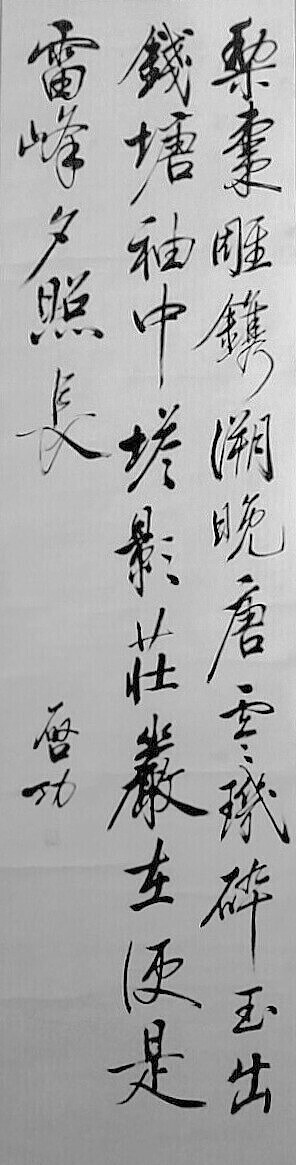 梨棗雕鐫溯晚唐零璣碎玉出
錢塘袖中塔影莊嚴在便是
雷峰夕照長
啓功